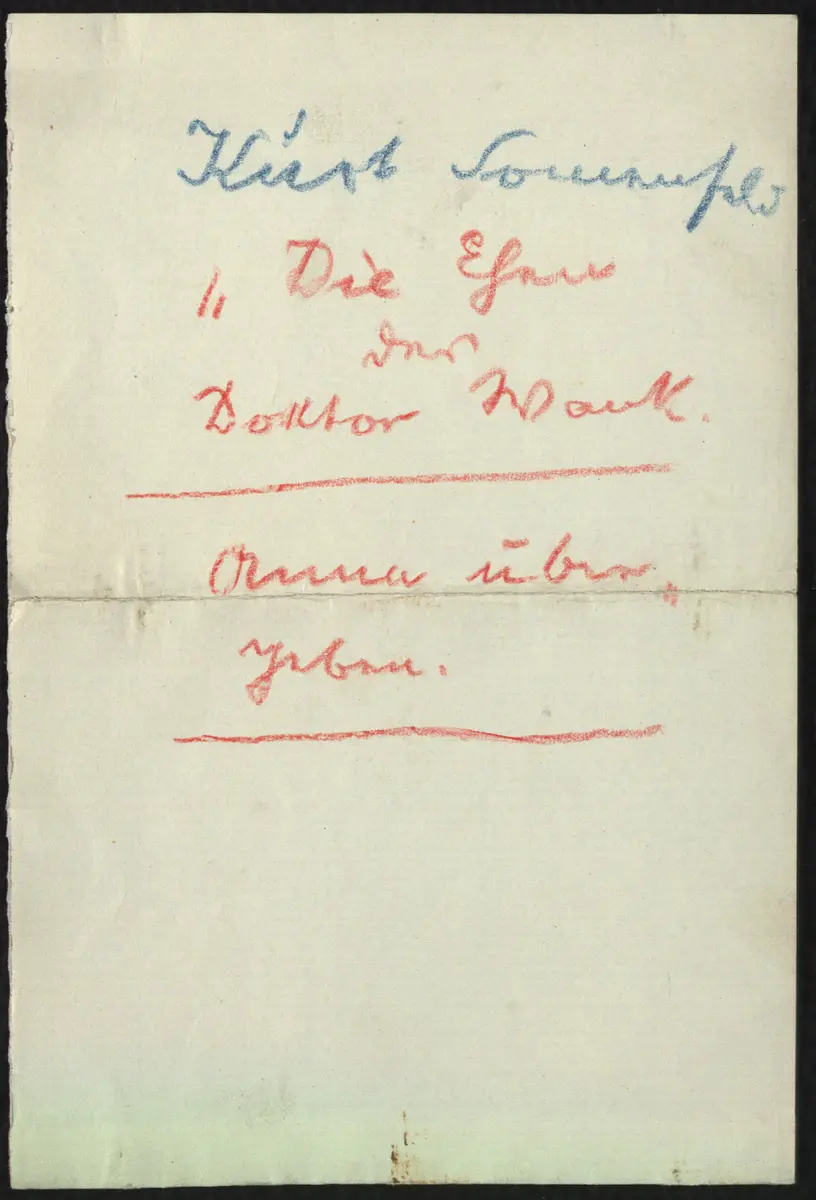 Kurt Sonnenfeld
„Die Ehen
der
Doktor Wank.
Anna über„
geben.